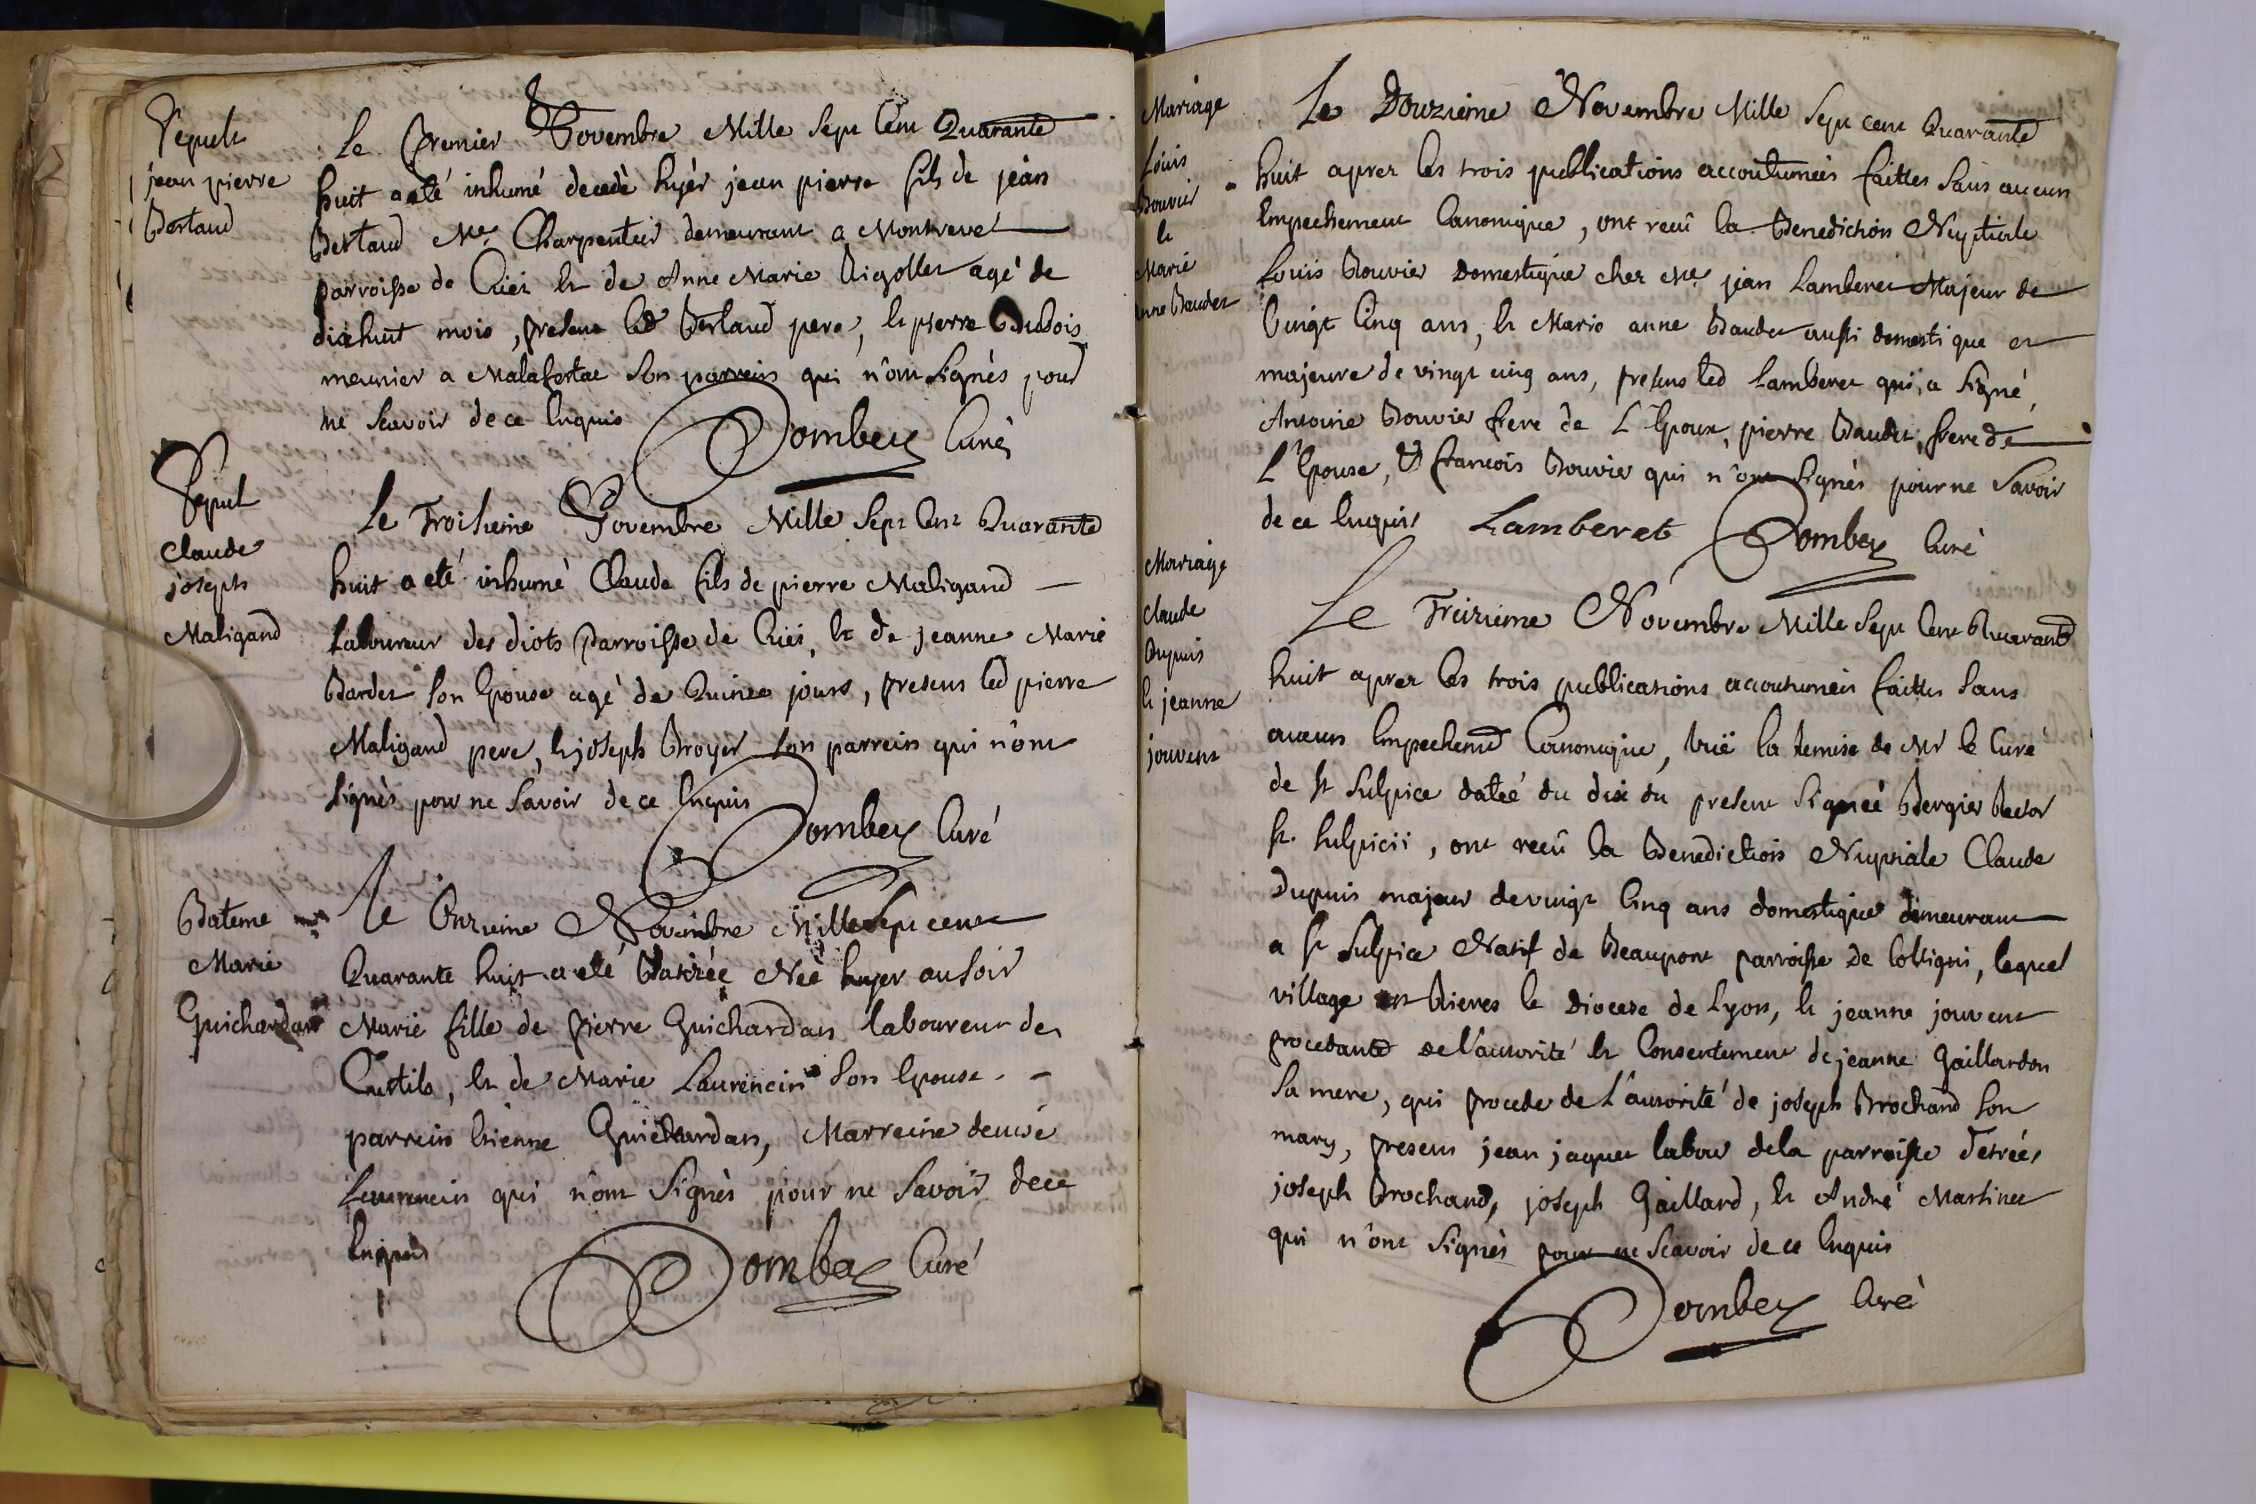 Sepult
jean pierre
Bertaud
Le premier Novembre Mille Sept Cent Quarante
huit a eté inhumé decedé hyèr jean pierre fils de jean
Bertaud Me. Charpentier demeurant a Montrevel
parroisse de Cuiei et de Anne Marie Rigollet agé de
dixhuit mois, present led Bertaud pere, et pierre Dubois
meunier a Malafertae son parrein qui n'ônt signés pour
ne Scavoir de ce Enquis
Dombey Curé
Sepul
Claude
joseph
Maligand
Le Troisieme Novembre Mille Sept Cent Quarante
huit a eté inhumé Claude fils de pierre Maligand
Laboureur des diots parroisse de Cuiei, et de jeanne Marie
Bardet son Epouse agé de Quinze jours, presens led pierre
Maligand pere, et joseph Broyer son parrein qui n'ônt
signés pour ne Savoir de ce Enquis
Dombey Curé
Bateme
Marie
Guichardan
Le Onzieme Novembre Mille Sept cent
Quarante huit a eté Batizée Neé hyer au soir
Marie fille de Pierre Guichardan laboureur des
Curtils, et de Marie Laurencin Son Epouse
parrein Etienne Guichardan, Marreine denise
Laurencin qui n'ônt Signés pour ne Savoir de ce
Enquis
Dombey Curé
Mariage
Louis
Bouvier
et
Marie
anne Baudet
Le Douzieme Novembre Mille Sept cent Quarante
huit aprez les trois publications accoutumées faittes sans aucun
Empechement Canonique, ont recû la Benediction Nuptiale
Louis Bouvier Domestique chez Me. jean Lamberet Majeur de
Vingt Cinq ans, et Marie anne Baudet aussi domestique et
majeure de vingt cinq ans, presens led Lamberet qui a signé,
Antoine Bouvier frere de L'Epoux, pierre Baudet, frere de
L'Epouse, & francois Bouvier qui n'ônt signés pour ne Savoir
de ce Enquis Lamberet Dombey Curé
Mariage
Claude
Dupuis
et jeanne
jouvent
Le Treizieme Novembre Mille Sept Cent Quarante
huit aprez les trois publications accoutumées faittes sans
aucun Empechemt Canonique, Vuë la remise de Mr le Curé
de St Sulpice dateé du dix du present Signeé Bergier Rector
St. Sulpicii, ont recû la Benediction Nuptiale Claude
Dupuis majeur de vingt Cinq ans domestique demeurant
a St Sulpice Natif de Beaupont parroisse de Colligni, lequel
village est Rieres le Diocese de Lyon, et jeanne jouvent
procedante de l'autorité et Consentement de jeanne Gaillardon
Sa mere, qui procede de L'autorité de joseph Brochand Son
mary, presens jean jaquet labour de la parroisse d'etrées
joseph Brochand, joseph Gaillard, et André Martinet
qui n'ônt signés pour ne Scavoir de ce Enquis
Dombey Curé